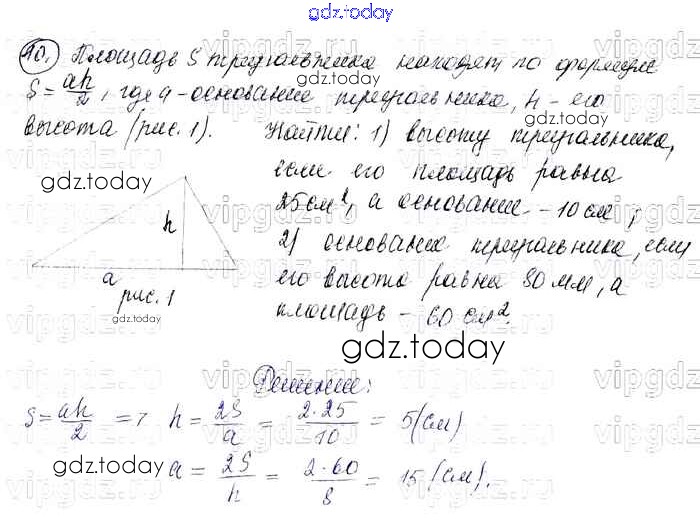 gdz.today
10. Площадь S треугольника находят по формуле
gdz.today
S = ah/2, где a - основание треугольника, h - его
gdz.today
высота (рис. 1). Найти: 1) высоту треугольника,
если его площадь равна
gdz.today
25 см², а основание - 10 см;
h
2) основание треугольника, если
его высота равна 80 мм, а
a
рис. 1
площадь - 60 см².
gdz.today
gdz.today
Решение:
S = ah/2 => h = 2S/a = 2·25/10 = 5 (см)
gdz.today
a = 2S/h = 2·60/8 = 15 (см).
vipgdz.ru